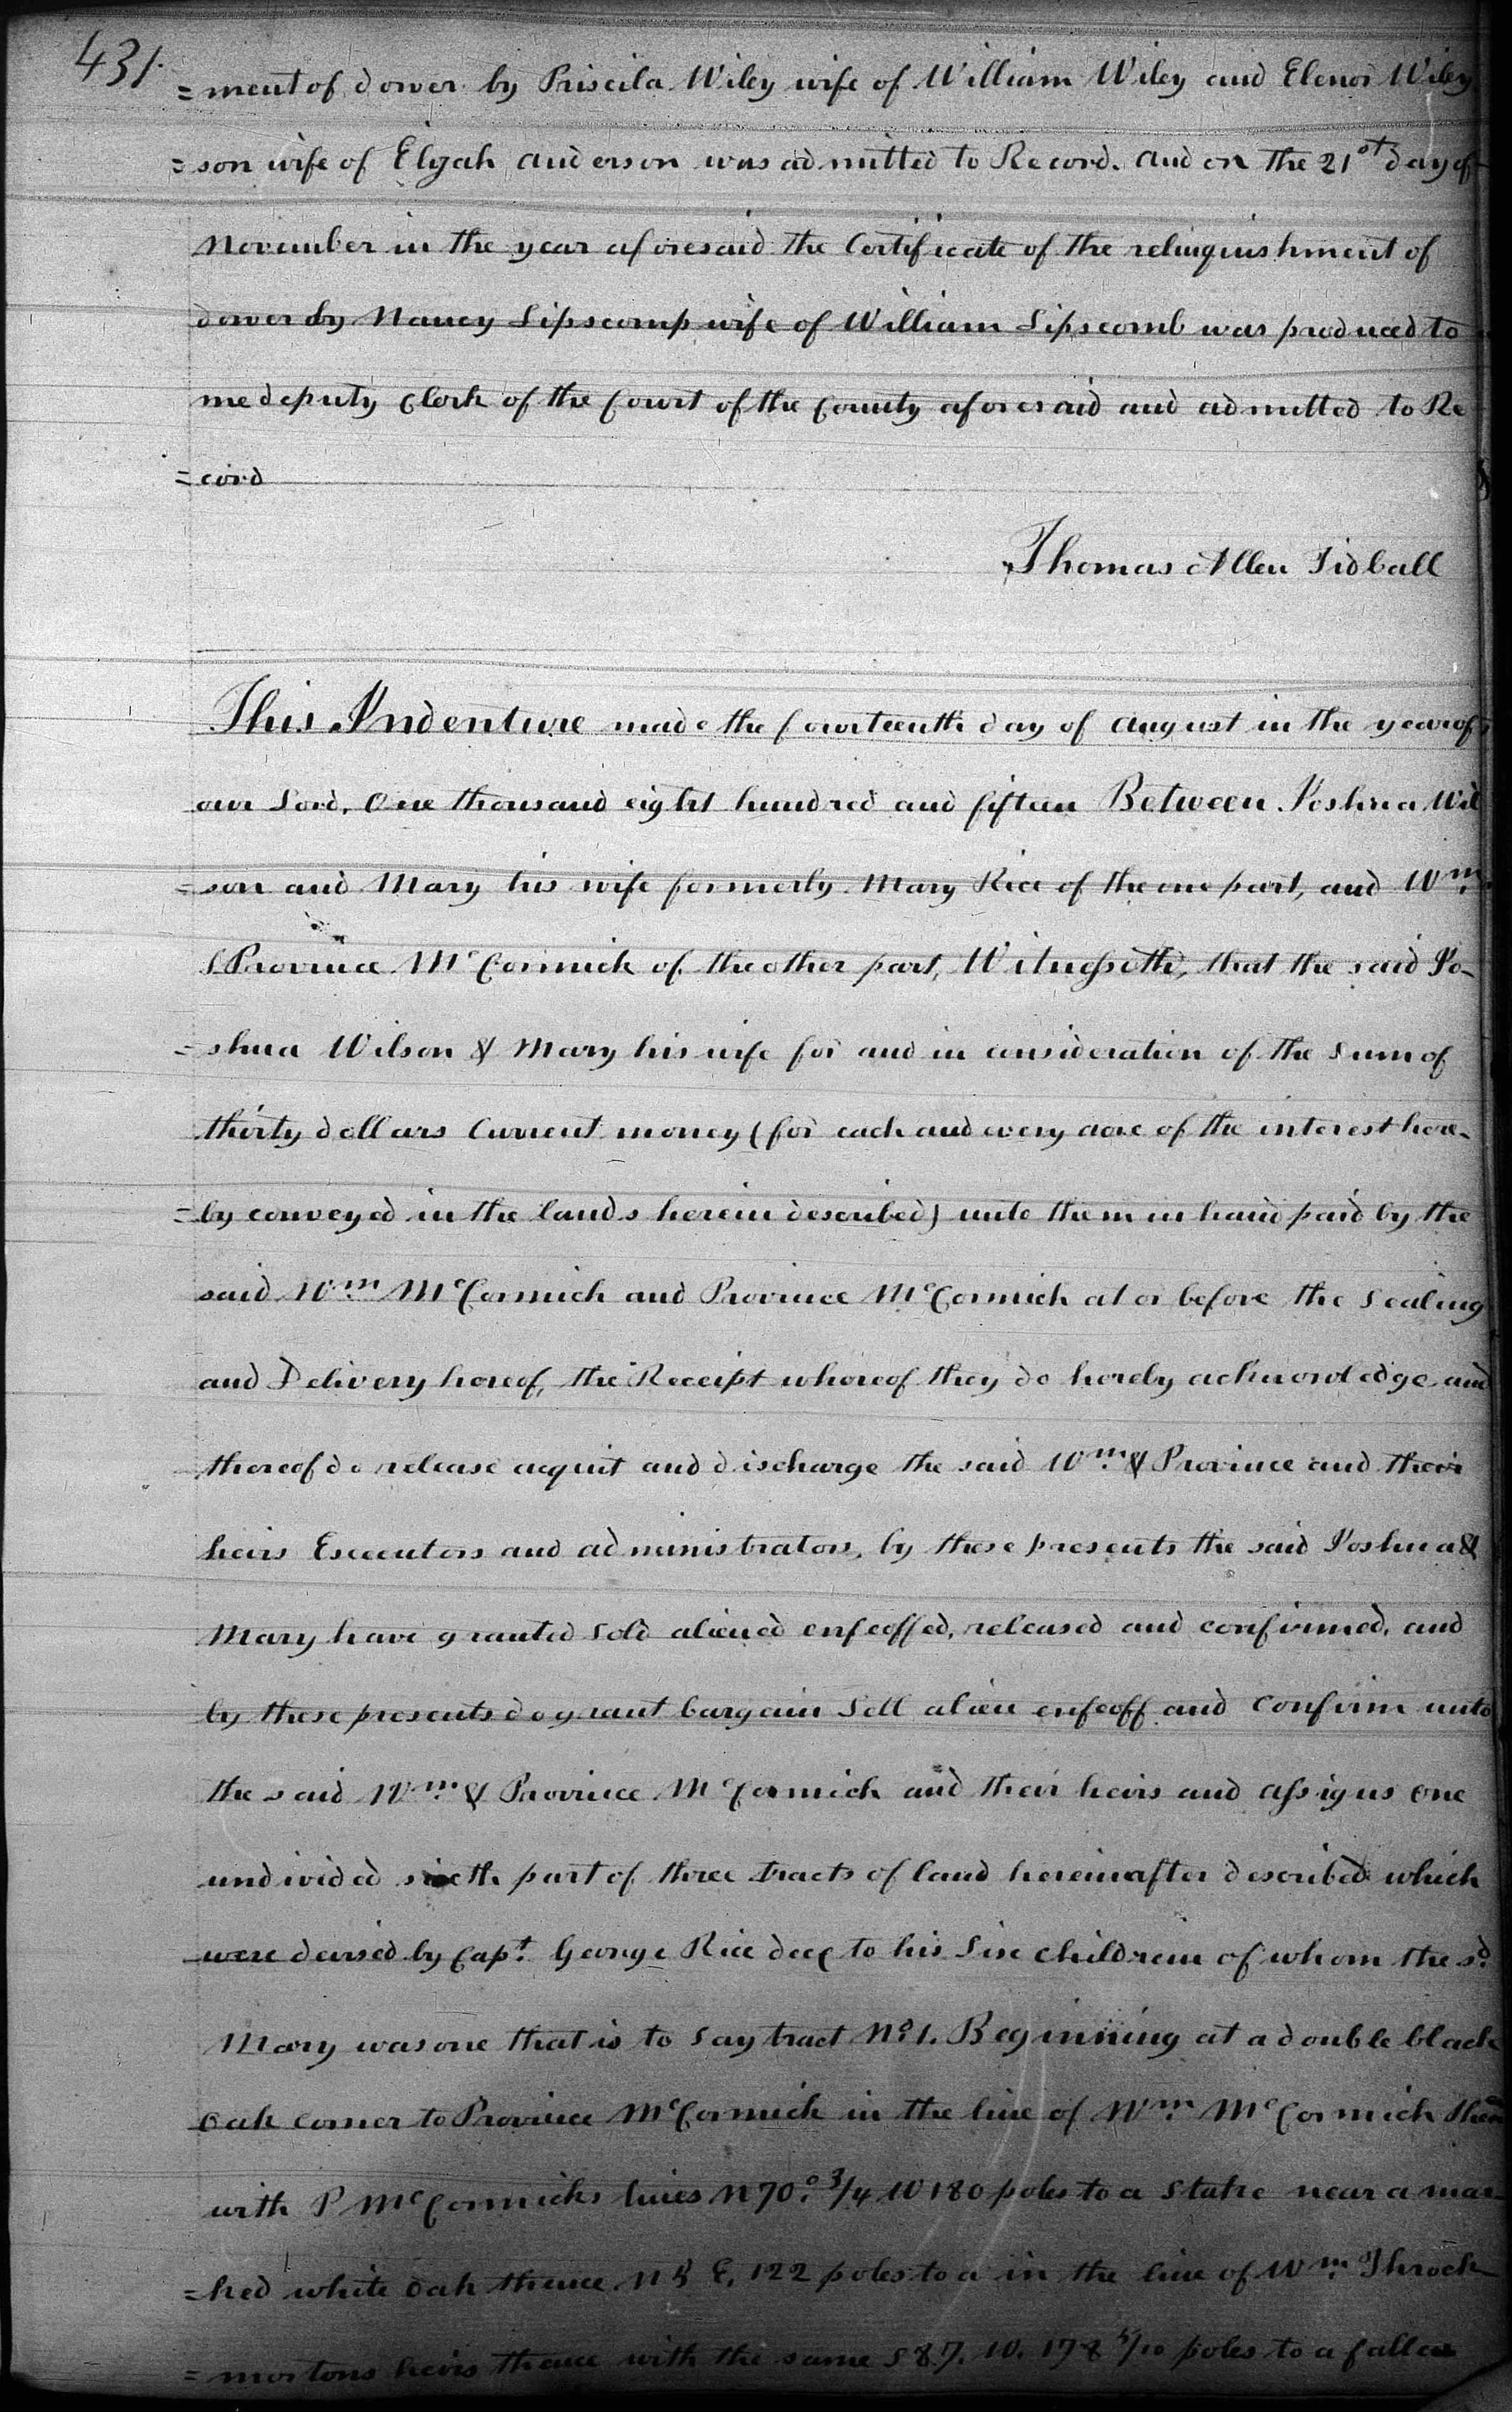 431.
=ment of dower by Priscila Wiley wife of William Wiley and Elenor Wiley
=son wife of Elijah anderson was admitted to Record. and on the 21st day of
November in the year aforesaid the Certificate of the relinquishment of
dower by Nancy Lipscomp wife of William Lipscomb was produced to
me deputy Clerk of the Court of the County aforesaid and admitted to Re
=cord
Thomas Allen Tidball
This Indenture made the fourteenth day of august in the year of
our Lord, One thousand eight hundred and fifteen Between Joshua Wil
=son and Mary his wife formerly Mary Rice of the one part, and Wm.
& Province McCormick of the other part, Witnesseth, that the said Jo-
=shua Wilson & Mary his wife for and in consideration of the sum of
thirty dollars Current money (for each and every acre of the interest here-
=by conveyed in the lands herein described) unto them in hand paid by the
said Wm. McCormick and Province McCormick at or before the sealing
and Delivery hereof, the Receipt whereof they do hereby acknowledge and
thereof do release acquit and discharge the said Wm. & Province and their
heirs Executors and administrators, by these presents the said Joshua &
Mary have granted sold aliened enfeoffed, released and confirmed, and
by these presents do grant bargain Sell alien enfeoff and Confirm unto
the said Wm. & Province McCormick and their heirs and assigns one
undivided sixth part of three tracts of land hereinafter described which
were devised by Capt. George Rice decd to his Six children of whom the sd.
Mary was one that is to say tract No. 1. Beginning at a double black
Oak corner to Province McCormick in the line of Wm. McCormick thence
with P McCormicks lines N 70.° 3/4 W 180 poles to a Stake near a mar-
=ked white Oak thence N E. 122 poles to a in the line of Wm. Throck
=mortons heirs thence with the same S 87. W. 178 /10 poles to a fallen